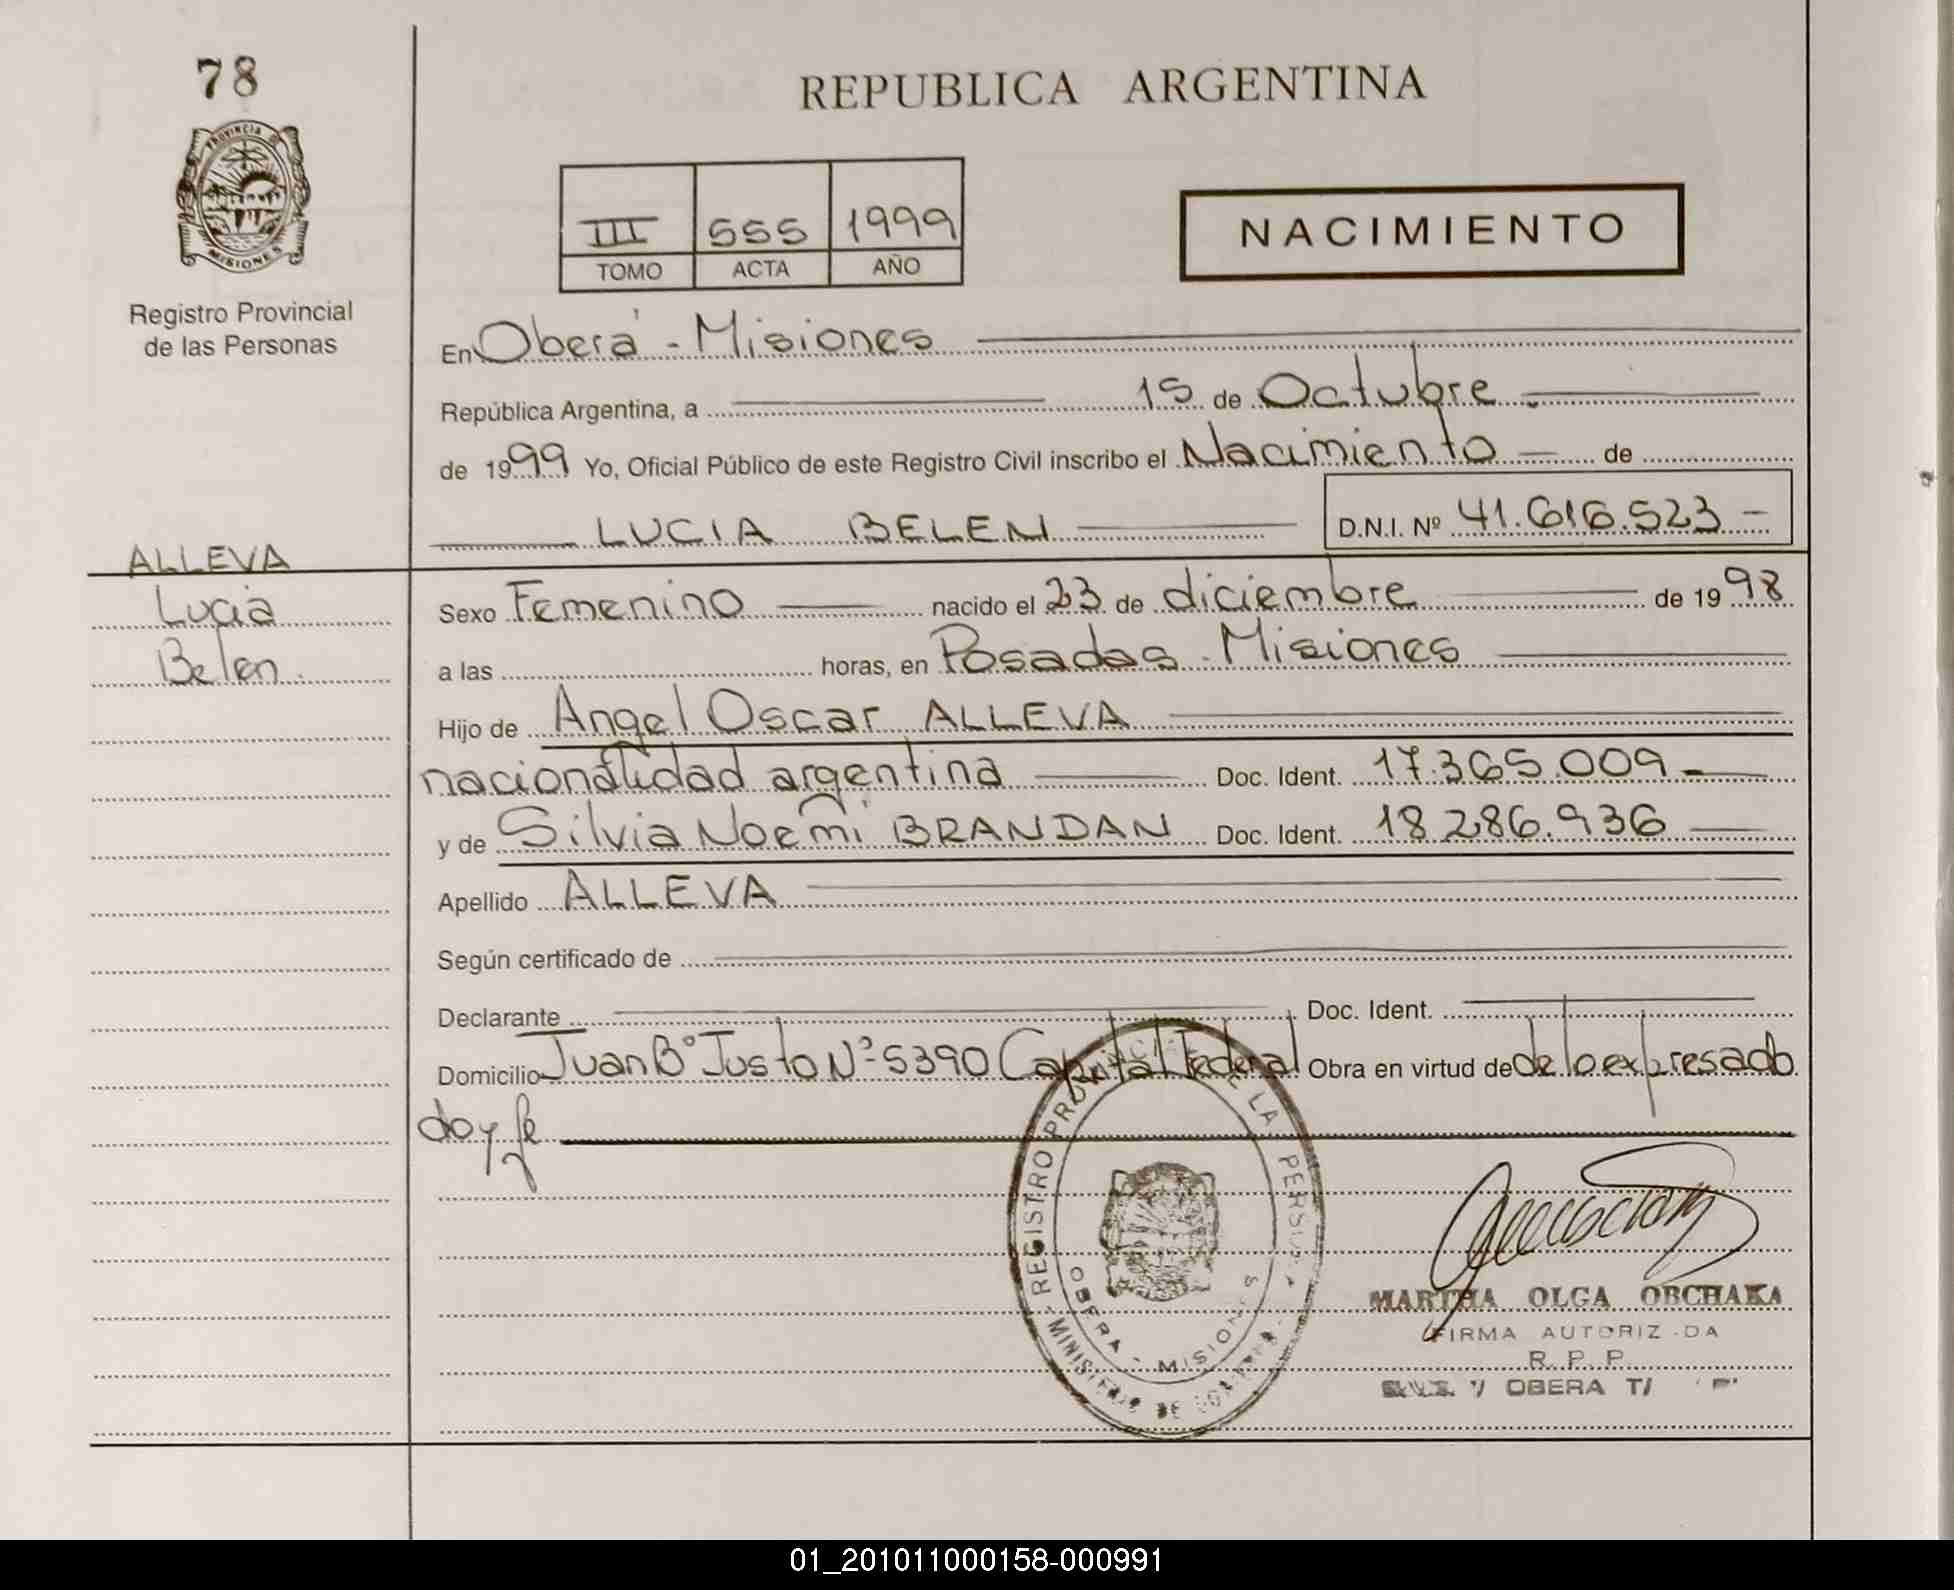 78
REPUBLICA ARGENTINA
PROVINCIA DE
MISIONES
Registro Provincial
de las Personas
III 555 1999
TOMO ACTA AÑO
NACIMIENTO
En Oberá - Misiones
República Argentina, a 15 de Octubre
de 1999 Yo, Oficial Público de este Registro Civil inscribo el Nacimiento de
LUCIA BELEN D.N.I. Nº 41.616.523
ALLEVA
Lucia
Belen
Sexo Femenino nacido el 23 de diciembre de 1998
a las horas, en Posadas - Misiones
Hijo de Angel Oscar ALLEVA
nacionalidad argentina Doc. Ident. 17.365.009
y de Silvia Noemí BRANDAN Doc. Ident. 18.286.936
Apellido ALLEVA
Según certificado de
Declarante Doc. Ident.
Domicilio Juan Bº Justo Nº 5390 Capital Federal Obra en virtud de de lo expresado
doy fe
REGISTRO LA
MINISTERIO DE
OBERA - MISIONES
MARTHA OLGA OBCHAKA
FIRMA AUTORIZ DA
R. P. P.
OBERA
01_201011000158-000991